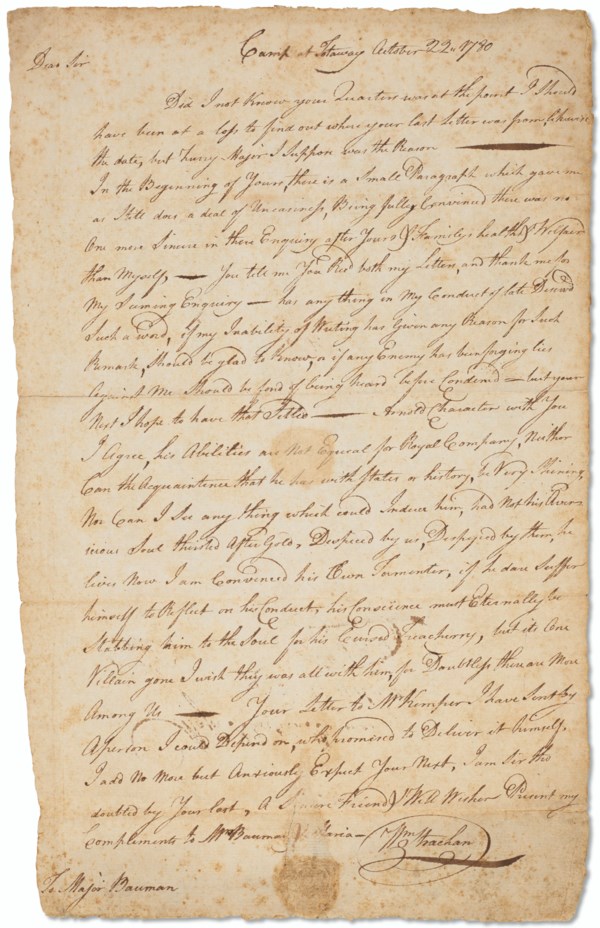 Camp at Totaway October 22d 1780
Dear Sir
Did I not Know your Quarters was at the point I Should
have been at a loss to find out where your last Letter was from likewise
the date, but hurry Major I Suppose was the Reason
In the Beginning of Yours, there is a Small Paragraph which gave me
as Still does a deal of Uneasiness, Being fully Convinced there was no
One more Sincere in there Enquiry after Yours & Familys health & Welfare
than Myself, — You tell me You Recd both my Letters, and thank me for
My Seeming Enquiry — has any thing in My Conduct of late Deservd
Such a Word, if my Inability of Writing has Given any Reason for Such
Remark, Should be glad to know, or if any Enemy has been forging lies
against Me Should be fond of being heard before Condemd — but your
Next I hope to have that — Arnold Character with You
I Agree, his Abilities are Not Equeal for Royal Company, Neither
Can the Acquaintence that he has with States or history, be Very Shining,
Nor Can I See any thing which could Induce him, had Not his Aver-
icious Soul thirsted After Gold, Despiced by us, Despiced by them, he
lives Now I am Convinced his Own Tormenter, if he dare Suffer
himself to Reflect on his Conduct, his Conscience must Eternally be
Stabbing him to the Soul for his Cursed Treacherry, but its One
Villain gone I wish they was all with him, for Doubtless there are More
Among Us — Your Letter to Mr Kemper I have Sent by
A person I could Depend on, who promised to Deliver it himself.
I add No More but Anxiously Expect Your Next, I am Sir tho
doubted by Your last, A Sincere Friend & Well Wisher Present my
Complements to Mrs Bauman & Maria — Wm Strachan
To Major Bauman